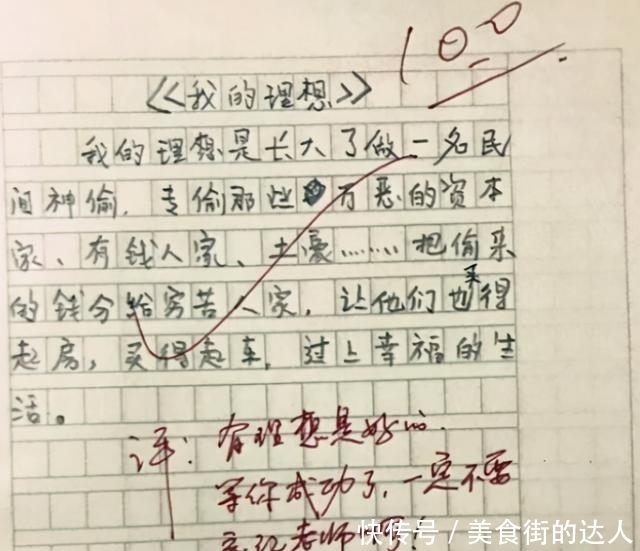 100
《我的理想》
我的理想是长大了做一名民
间神偷，专偷那些万恶的资本
家、有钱人家、土豪……把偷来
的钱分给穷苦人家，让他们也买得
起房，买得起车，过上幸福的生
活。
评：有理想是好的.
等你成功了，一定不要
老师
快传号／美食街的达人